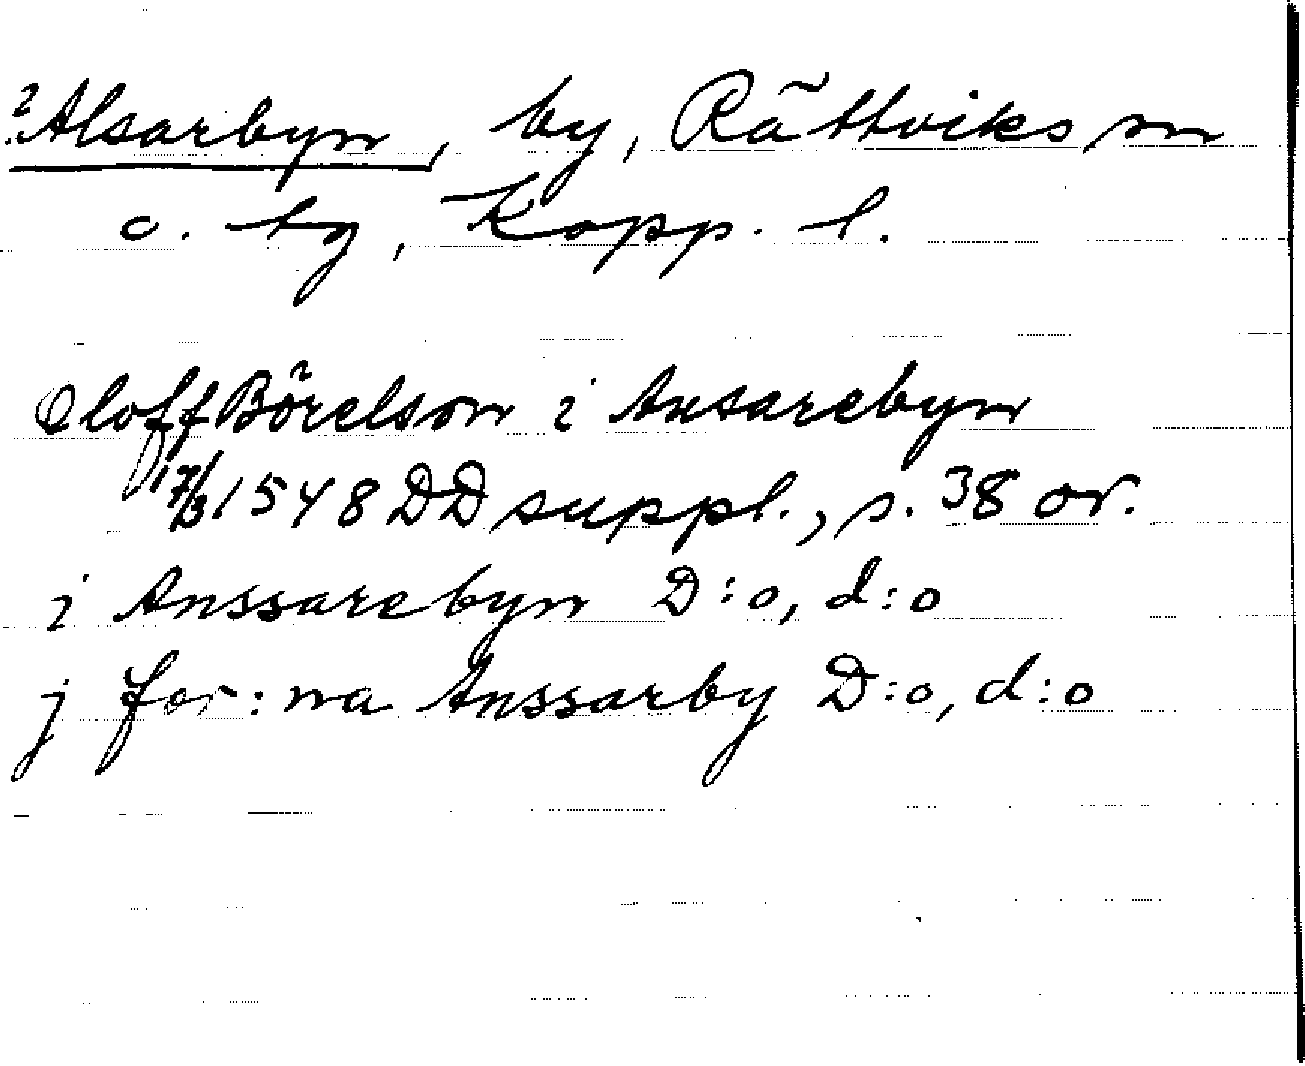 ?Alsarbyn, by, Rättviks sn
o. tg, Kopp. l.
Oloff Börelson i Ansarebyn
17/3 1548 DD suppl., s. 38 or.
i Anssarebyn D:o, d:o
j for:na Anssarby D:o, d:o